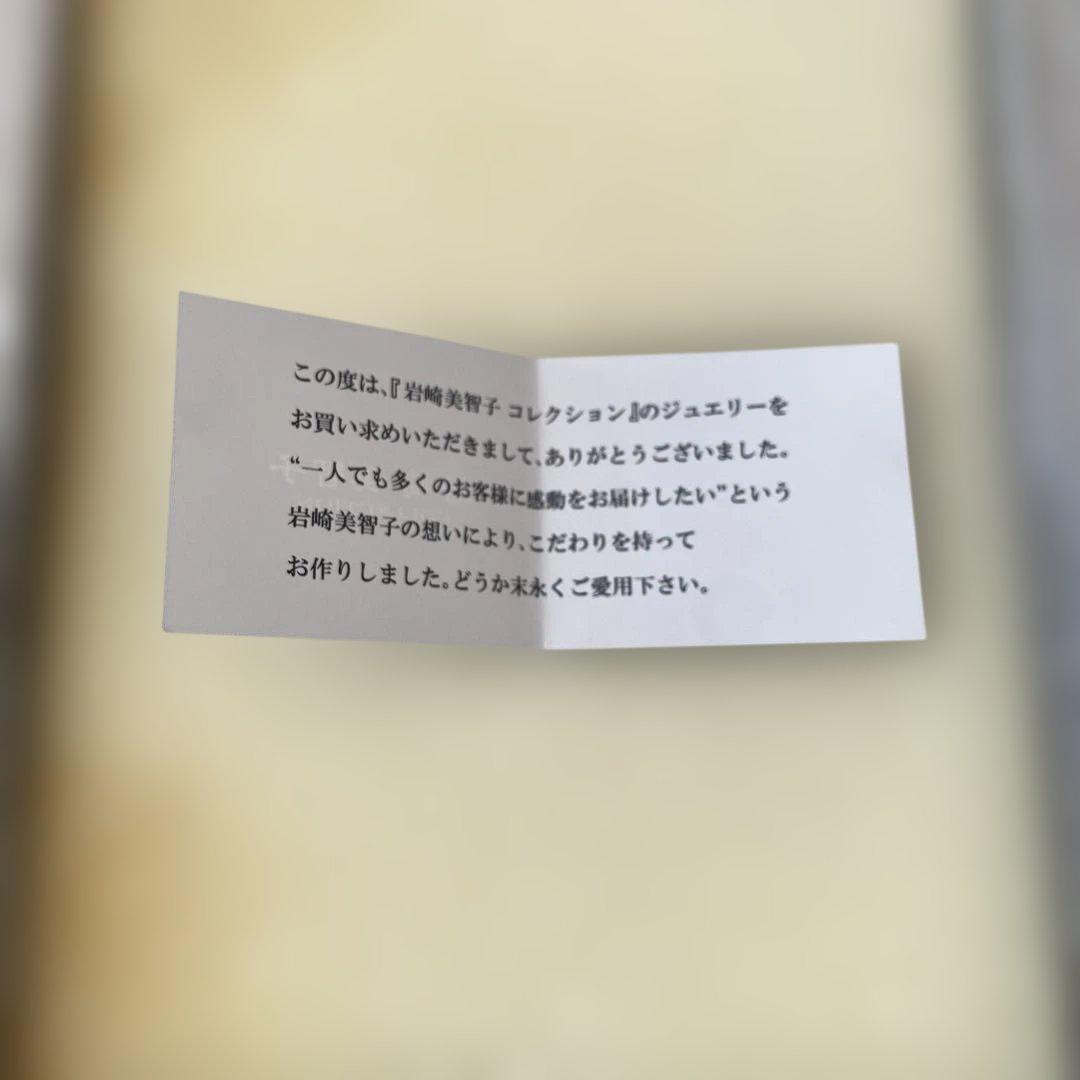 この度は、『岩崎美智子 コレクション』のジュエリーを
お買い求めいただきまして、ありがとうございました。
“一人でも多くのお客様に感動をお届けしたい”という
岩崎美智子の想いにより、こだわりを持って
お作りしました。どうか末永くご愛用下さい。